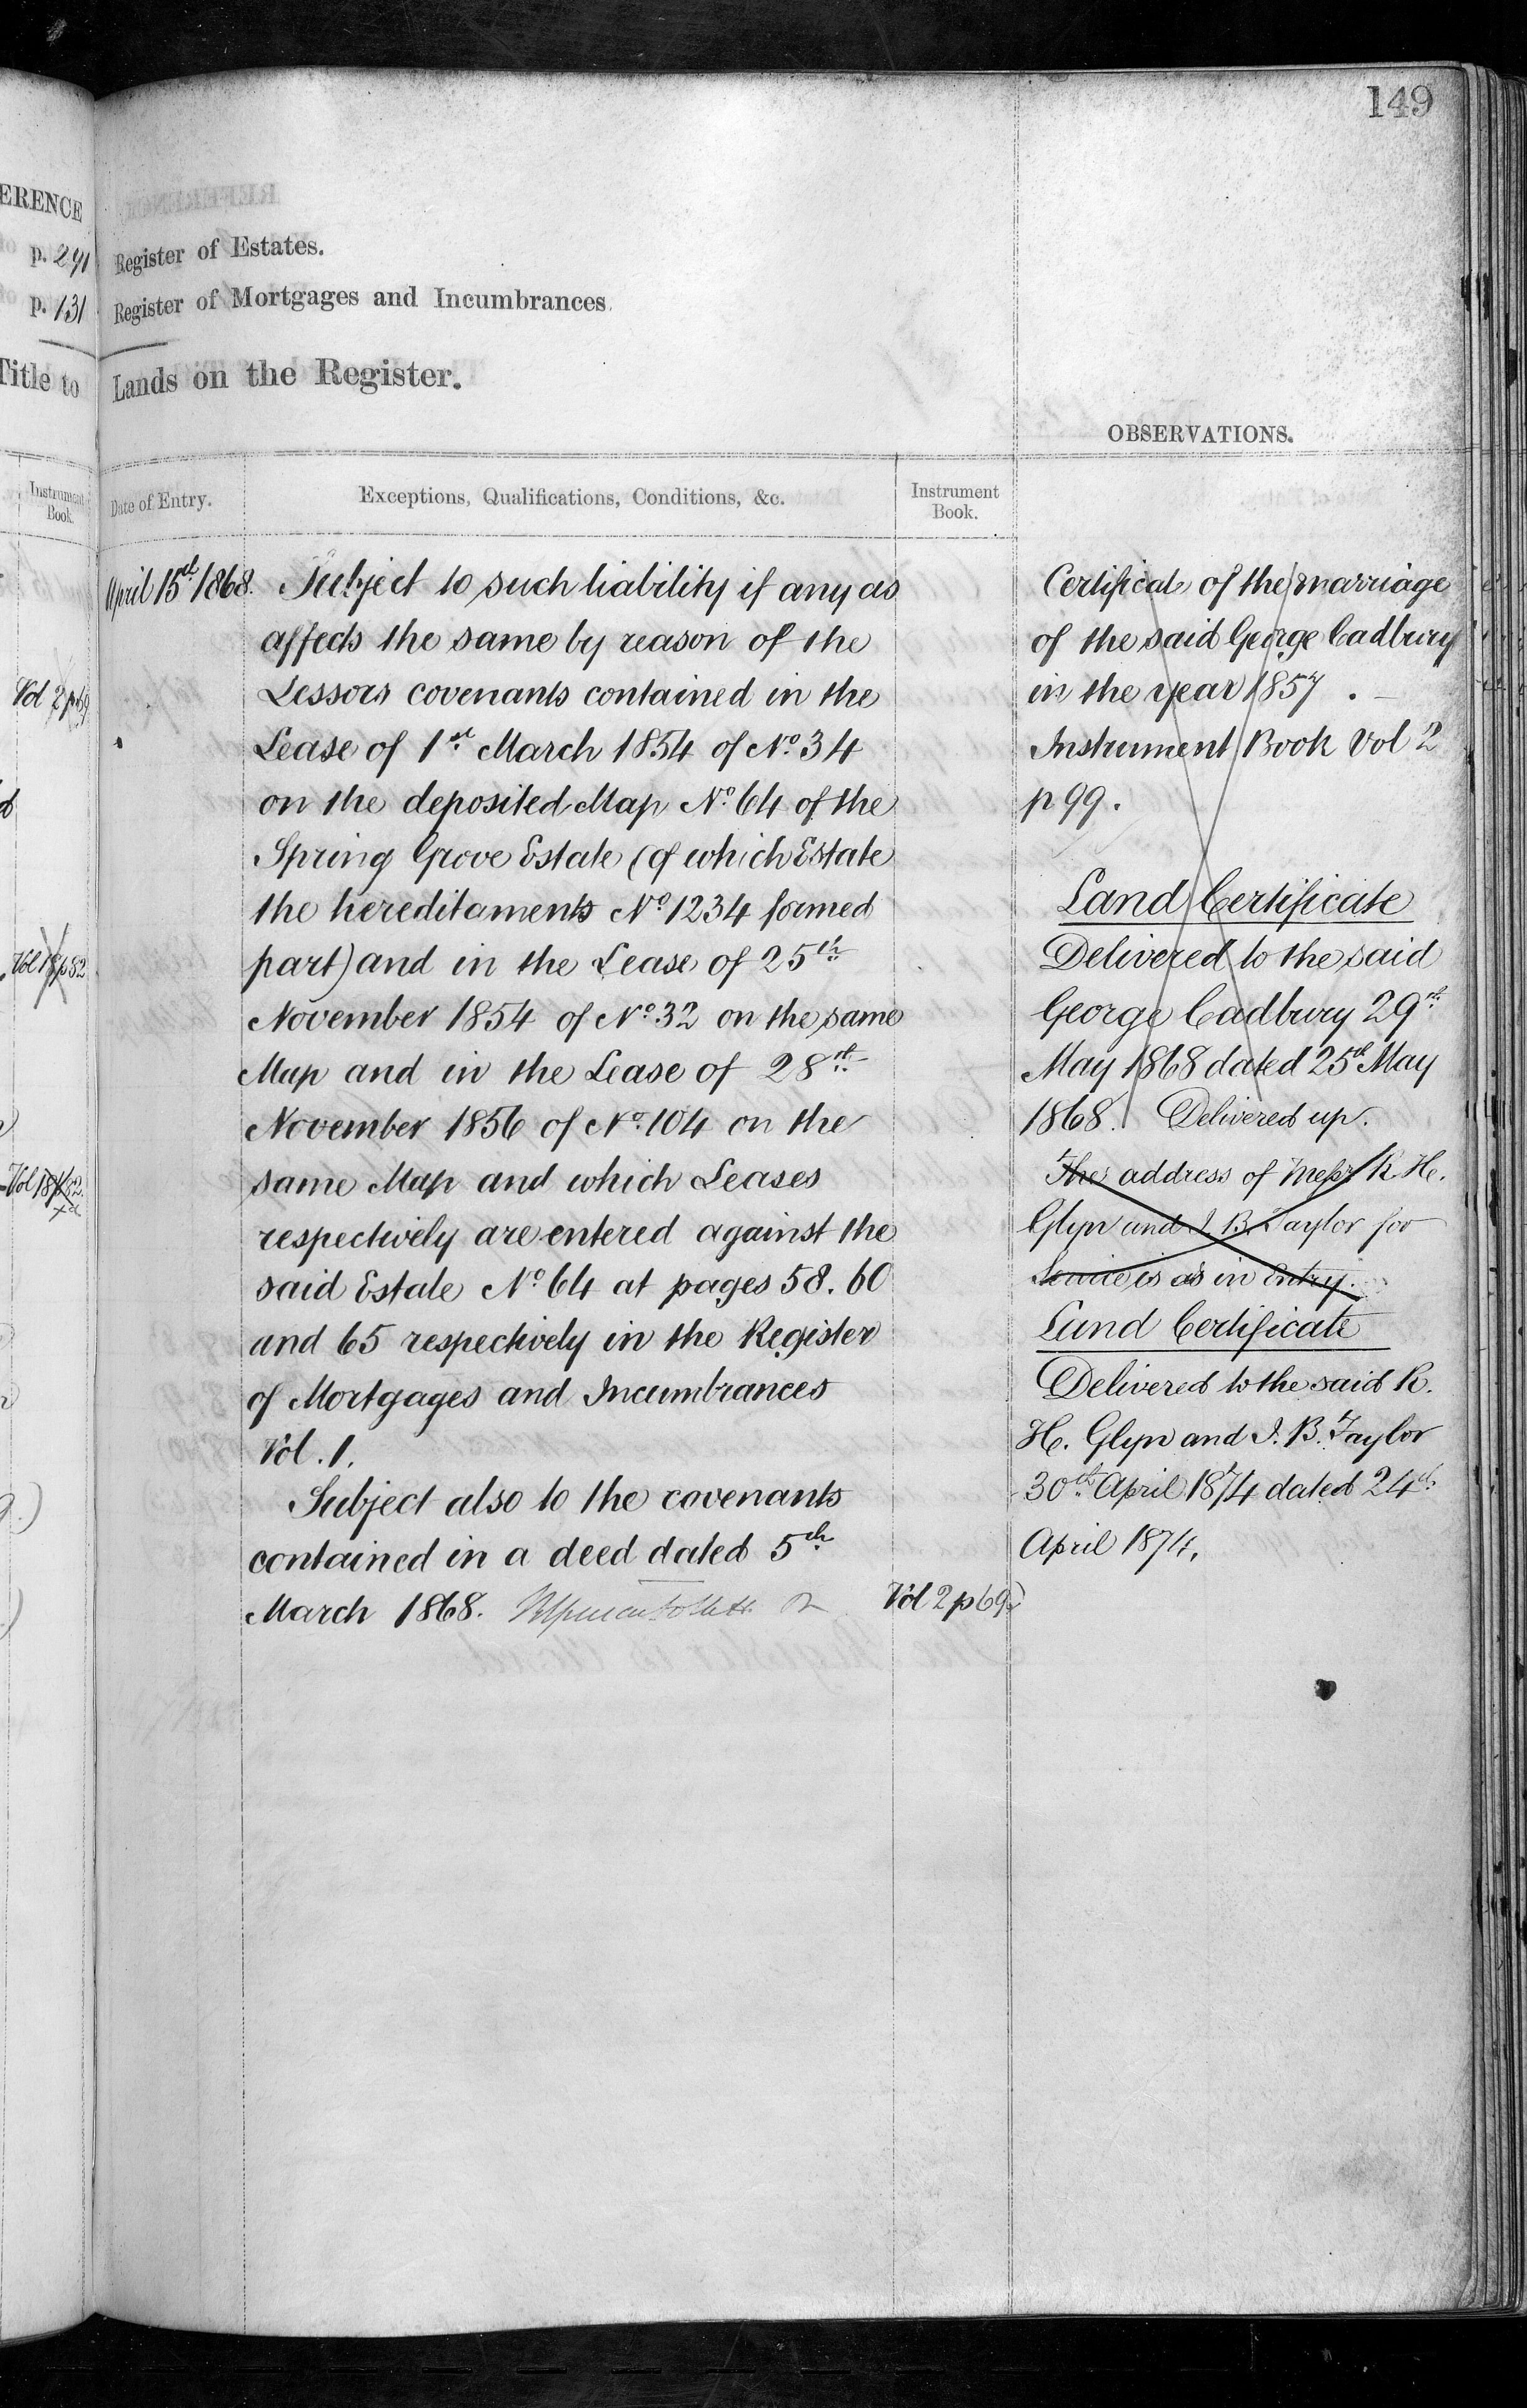 149
ERENCE
p. 291
p. 131
Title to
Instrument
Book.
Vol 2 p 69
Vol 18 p 82
Vol 18 p 82
Register of Estates.
Register of Mortgages and Incumbrances.
Lands on the Register.
OBSERVATIONS.
Date of Entry.
Exceptions, Qualifications, Conditions, &c.
Instrument
Book.
April 15th 1868.
Subject to such liability if any as
affects the same by reason of the
Lessors covenants contained in the
Lease of 1st March 1854 of No. 34
on the deposited Map No. 64 of the
Spring Grove Estate (of which Estate
the hereditaments No. 1234 formed
part) and in the Lease of 25th
November 1854 of No. 32 on the same
Map and in the Lease of 28th
November 1856 of No. 104 on the
same Map and which Leases
respectively are entered against the
said Estate No. 64 at pages 58. 60
and 65 respectively in the Register
of Mortgages and Incumbrances
Vol. 1.
Subject also to the covenants
contained in a deed dated 5th
March 1868.
Vol 2 p 69.
Certificate of the marriage
of the said George Cadbury
in the year 1857 .
Instrument Book Vol 2
p 99.
Land Certificate
Delivered to the said
George Cadbury 29th
May 1868 dated 25th May
1868. Delivered up.
The address of Messrs R. H.
Glyn and I. B. Taylor for
Service is as in Entry.
Land Certificate
Delivered to the said R.
H. Glyn and I. B. Taylor
30th April 1874 dated 24th
April 1874.